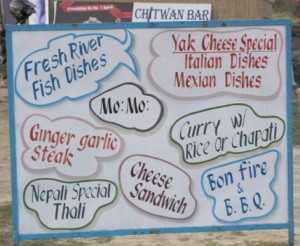 CHITWAN BAR
Fresh River
Fish Dishes
Yak Cheese Special
Italian Dishes
Mexian Dishes
Mo: Mo:
Ginger garlic
Steak
Curry w/
Rice or Chapati
Cheese
Sandwich
Nepali Special
Thali
Bon fire
&
B. B. Q.